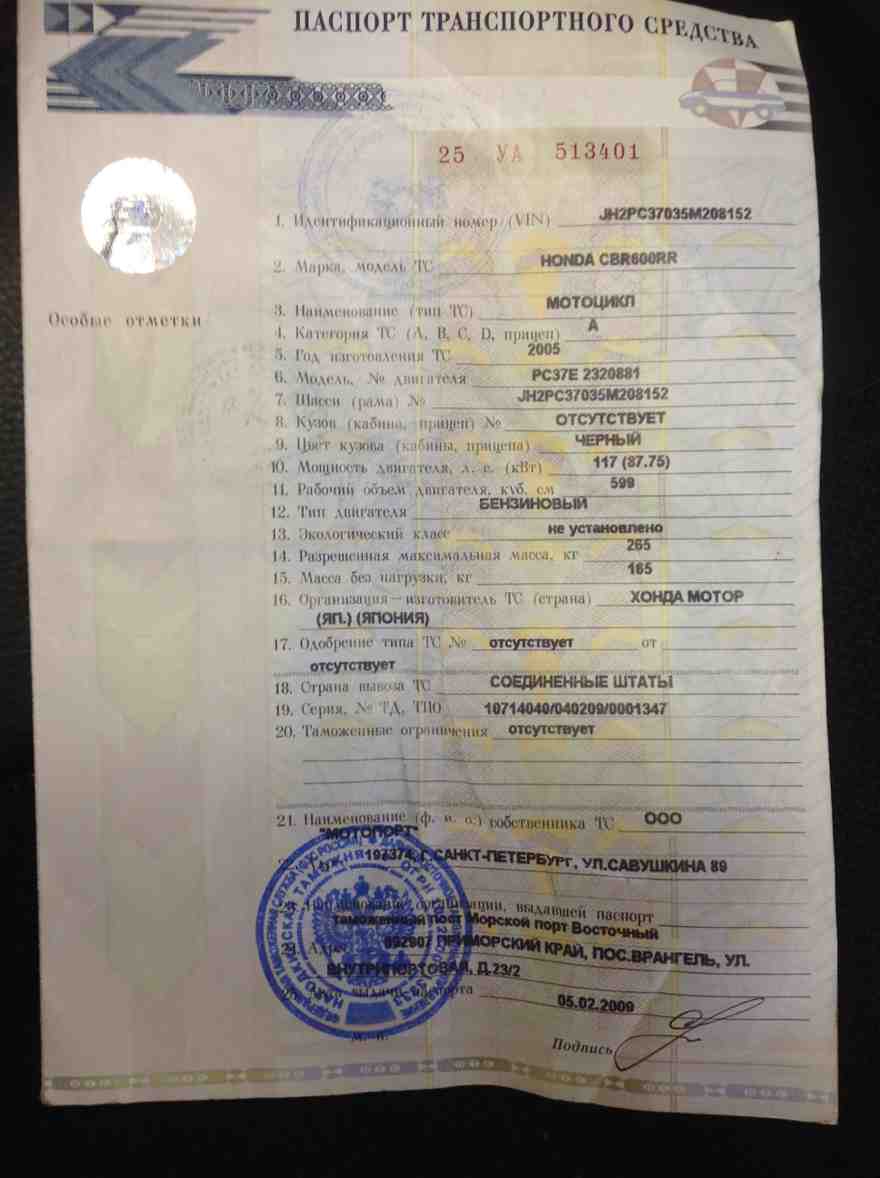 ПАСПОРТ ТРАНСПОРТНОГО СРЕДСТВА
25 УА 513401
1. Идентификационный номер (VIN) JH2PC37035M208152
2. Марка, модель ТС HONDA CBR600RR
Особые отметки
3. Наименование (тип ТС) МОТОЦИКЛ
4. Категория ТС (A, B, C, D, прицеп) A
5. Год изготовления ТС 2005
6. Модель, № двигателя PC37E 2320881
7. Шасси (рама) № JH2PC37035M208152
8. Кузов (кабина, прицеп) № ОТСУТСТВУЕТ
9. Цвет кузова (кабины, прицепа) ЧЕРНЫЙ
10. Мощность двигателя, л. с. (кВт) 117 (87.75)
11. Рабочий объем двигателя, куб. см 599
12. Тип двигателя БЕНЗИНОВЫЙ
13. Экологический класс не установлено
14. Разрешенная максимальная масса, кг 265
15. Масса без нагрузки, кг 165
16. Организация—изготовитель ТС (страна) ХОНДА МОТОР
(ЯП.) (ЯПОНИЯ)
17. Одобрение типа ТС № отсутствует от
отсутствует
18. Страна вывоза ТС СОЕДИНЕННЫЕ ШТАТЫ
19. Серия, № ТД, ТПО 10714040/040209/0001347
20. Таможенные ограничения отсутствует
21. Наименование (ф. и. о.) собственника ТС ООО
"МОТОПОРТ"
197374, Г.САНКТ-ПЕТЕРБУРГ, УЛ.САВУШКИНА 89
организации, выдавшей паспорт
таможенный пост Морской порт Восточный
24. Адрес 692907 ПРИМОРСКИЙ КРАЙ, ПОС.ВРАНГЕЛЬ, УЛ.
ВНУТРИПОРТОВАЯ, Д.23/2
выдачи паспорта 05.02.2009
м. п.
Подпись